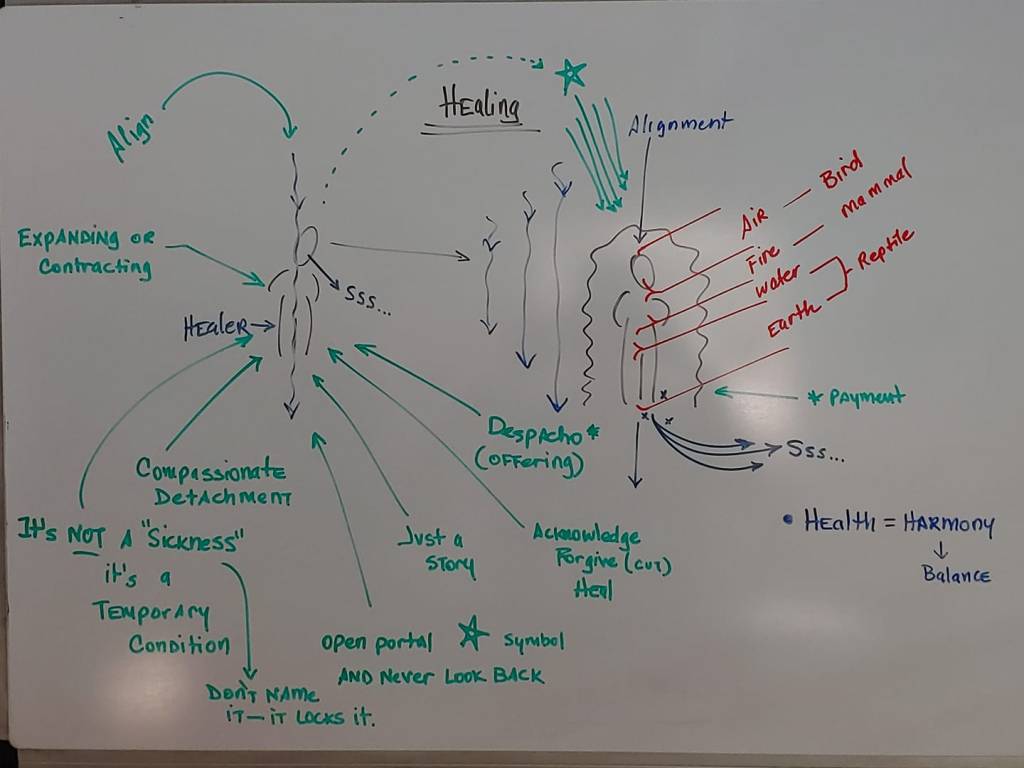 HEALING
Align
Alignment
Bird
AiR
mammal
Fire
Reptile
water
Earth
EXPANDING OR
Contracting
SSS...
HEALER
* PAYMENT
DESPACHO*
(OFFERING)
SSS...
Compassionate
DETACHMENT
IT'S NOT A "SICKNESS"
it's a
TEMPORARY
CONDITION
DON'T NAME
IT - IT LOCKS IT.
Just a
STORY
Acknowledge
Forgive (CUT)
Heal
OPEN portal ☆ symbol
AND Never LOOK BACK
• HEALTH = HARMONY
↓
BALANCE